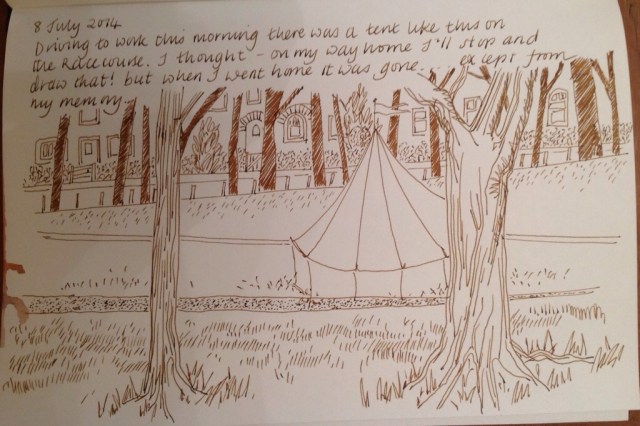 8 July 2014
Driving to work this morning there was a tent like this on
the Racecourse. I thought - on my way home I'll stop and
draw that! but when I went home it was gone... except from
my memory.